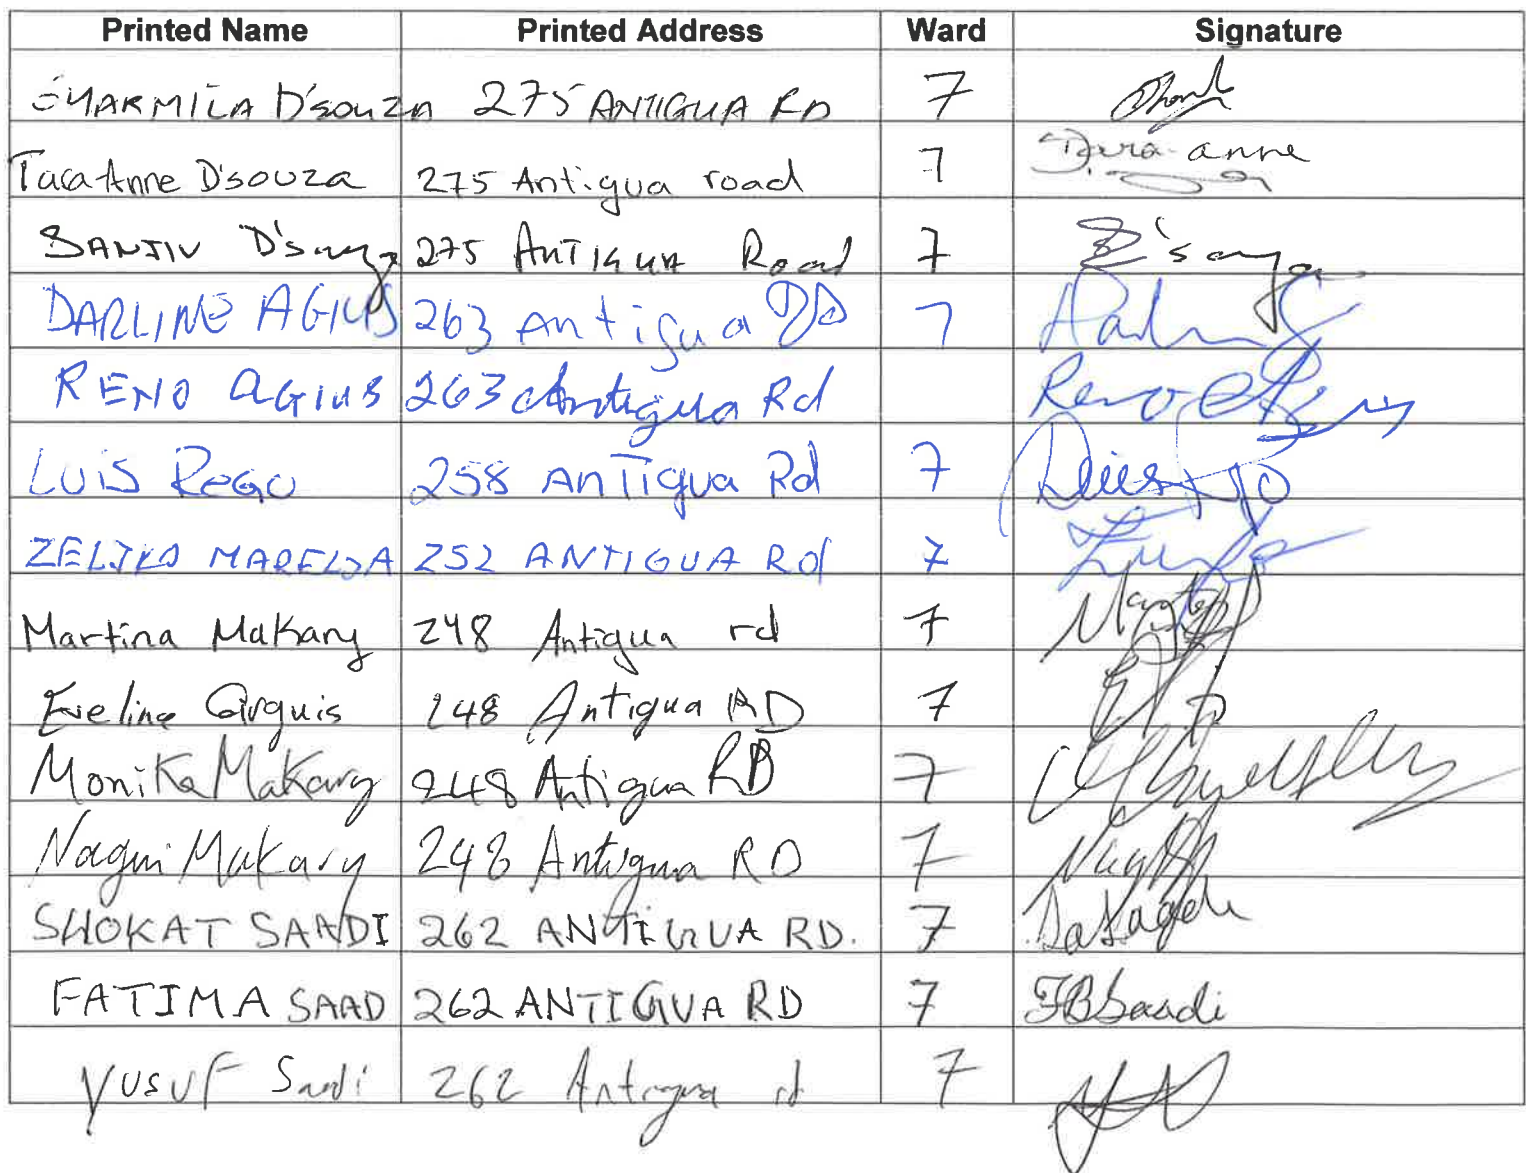 Printed Name Printed Address Ward Signature
SHARMILA D'souza 275 ANTIGUA RD 7
Tara-Anne D'souza 275 Antigua road 7 Tara-anne
SANJIV D'souza 275 ANTIGUA Road 7 D'souza
DARLINE AGIUS 263 Antigua RD 7
RENO AGIUS 263 Antigua Rd Reno Agius
LUIS REGO 258 ANTIGUA Rd 7 Luis Rego
ZELJKO MARELJA 252 ANTIGUA Rd 7
Martina Makary 248 Antigua rd 7
Eveline Girguis 248 Antigua RD 7
Monika Makary 248 Antigua RD 7
Nagui Makary 248 Antigua RD 7
SHOKAT SAADI 262 ANTIGUA RD. 7
FATIMA SAAD 262 ANTIGUA RD 7 FBSaadi
YUSUF Saadi 262 Antigua rd 7